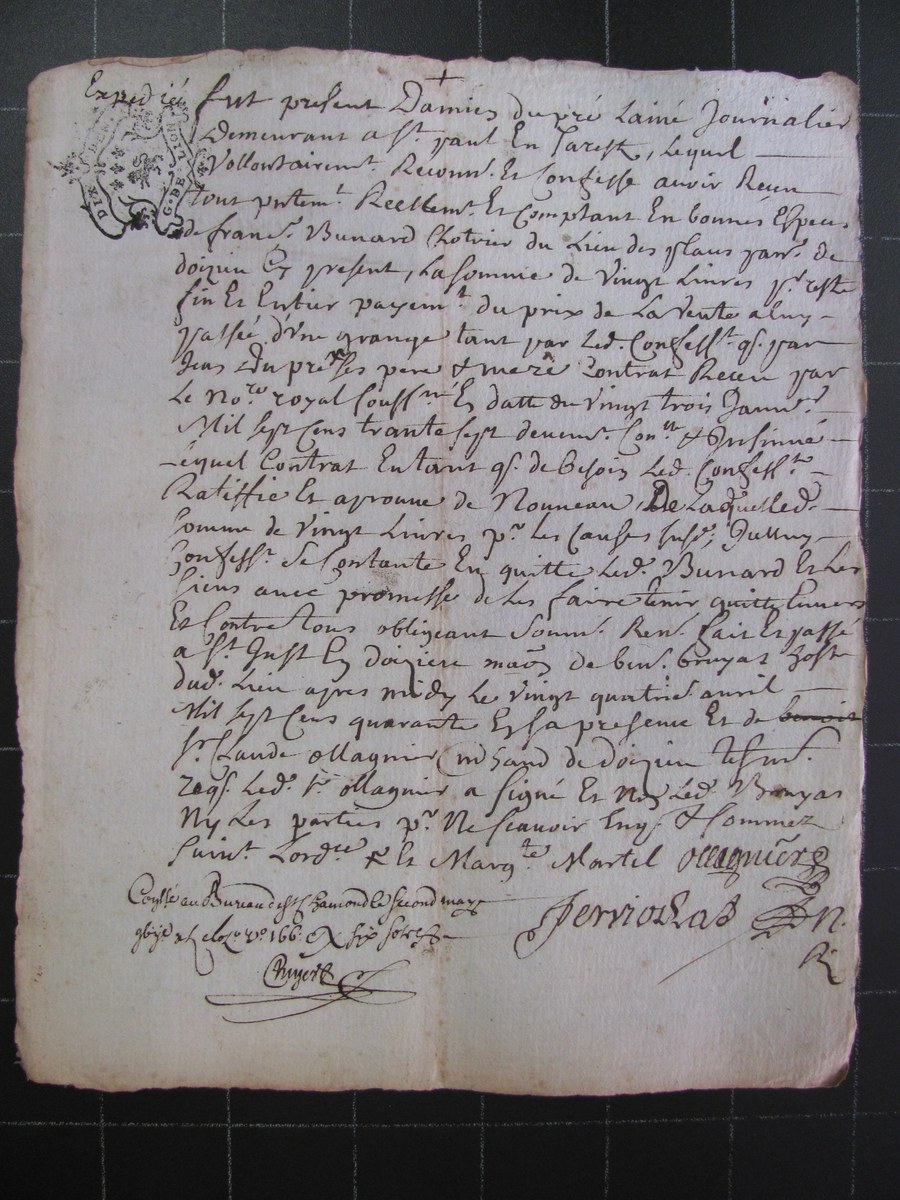 Expedié
DIX DEN
G. DE LION
fut présent Damien dupré Lainé Journalier
Demeurant a St. paul En Jarest, lequel
Vollontairemt. Reconn. Et Confesse avoir Receu
tout pntemt. Reellemt. Et Comptant En bonnes Espèces
de franc. Bunard Clotrier du Lieu des plaus parr. de
doizieu Cy present, La somme de Vingt Livres pr. reste
fin Et Entier payemt. du prix de La Vente a luy
passée d'une grange tant par Led. Confesst. qs. par
Jeus Dupré ses pere & mere Contrat Receu par
Le nore. royal soussné. En datte du Vingt trois Janvr.
Mil sept Cens trante sept deuemt. Connt. & Insinué
lequel Contrat En tant qs. de besoin Led. Confesst.
Ratiffie Et aprouve de Nouveau, De Laquelled.
somme de Vingt Livres pr. Les Causes susd.
Confesst. se Contante En quitte Led. Bunard Et Les
siens avec promesse de Les faire tenir quitte Envers
Et Contre tous obligeant soumt. Rent. fait Et passé
a St. Just En doizieu maon de ben. bruyas hoste
dud. Lieu apres midy Le Vingt quatrie. avril
Mil sept Cens quarante En sa presence Et de benoit
sr. Claude ollagnier mchand de doizieu tesm.
reqs. Led. sr. ollagnier a signé Et non Led. Bruyas
Ny Les parties pr. Ne scavoir Enqs. & sommez
suivt. Lordce. & Et Margte. Martel ollagnier
Conllé au Bureau de St Chamond le second may
fo 166 Rx six sols